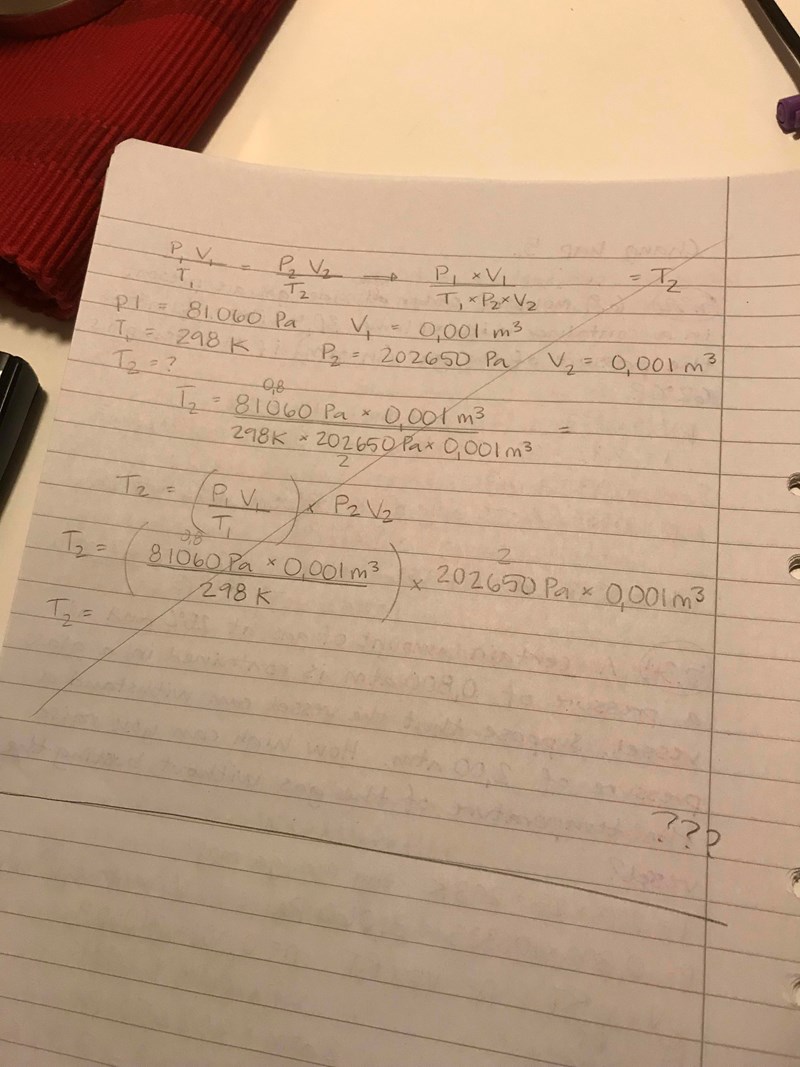 P₁ V₁ / T₁ = P₂ V₂ / T₂ → P₁ × V₁ / T₁ × P₂ × V₂ = T₂
P1 = 81060 Pa V₁ = 0,001 m³
T₁ = 298 K P₂ = 202650 Pa V₂ = 0,001 m³
T₂ = ?
0,8
T₂ = 81060 Pa × 0,001 m³ / 298K × 202650 Pa × 0,001 m³ =
2
T₂ = (P₁ V₁ / T₁) × P₂ V₂
0,8 2
T₂ = (81060 Pa × 0,001 m³ / 298 K) × 202650 Pa × 0,001 m³
T₂ =
???